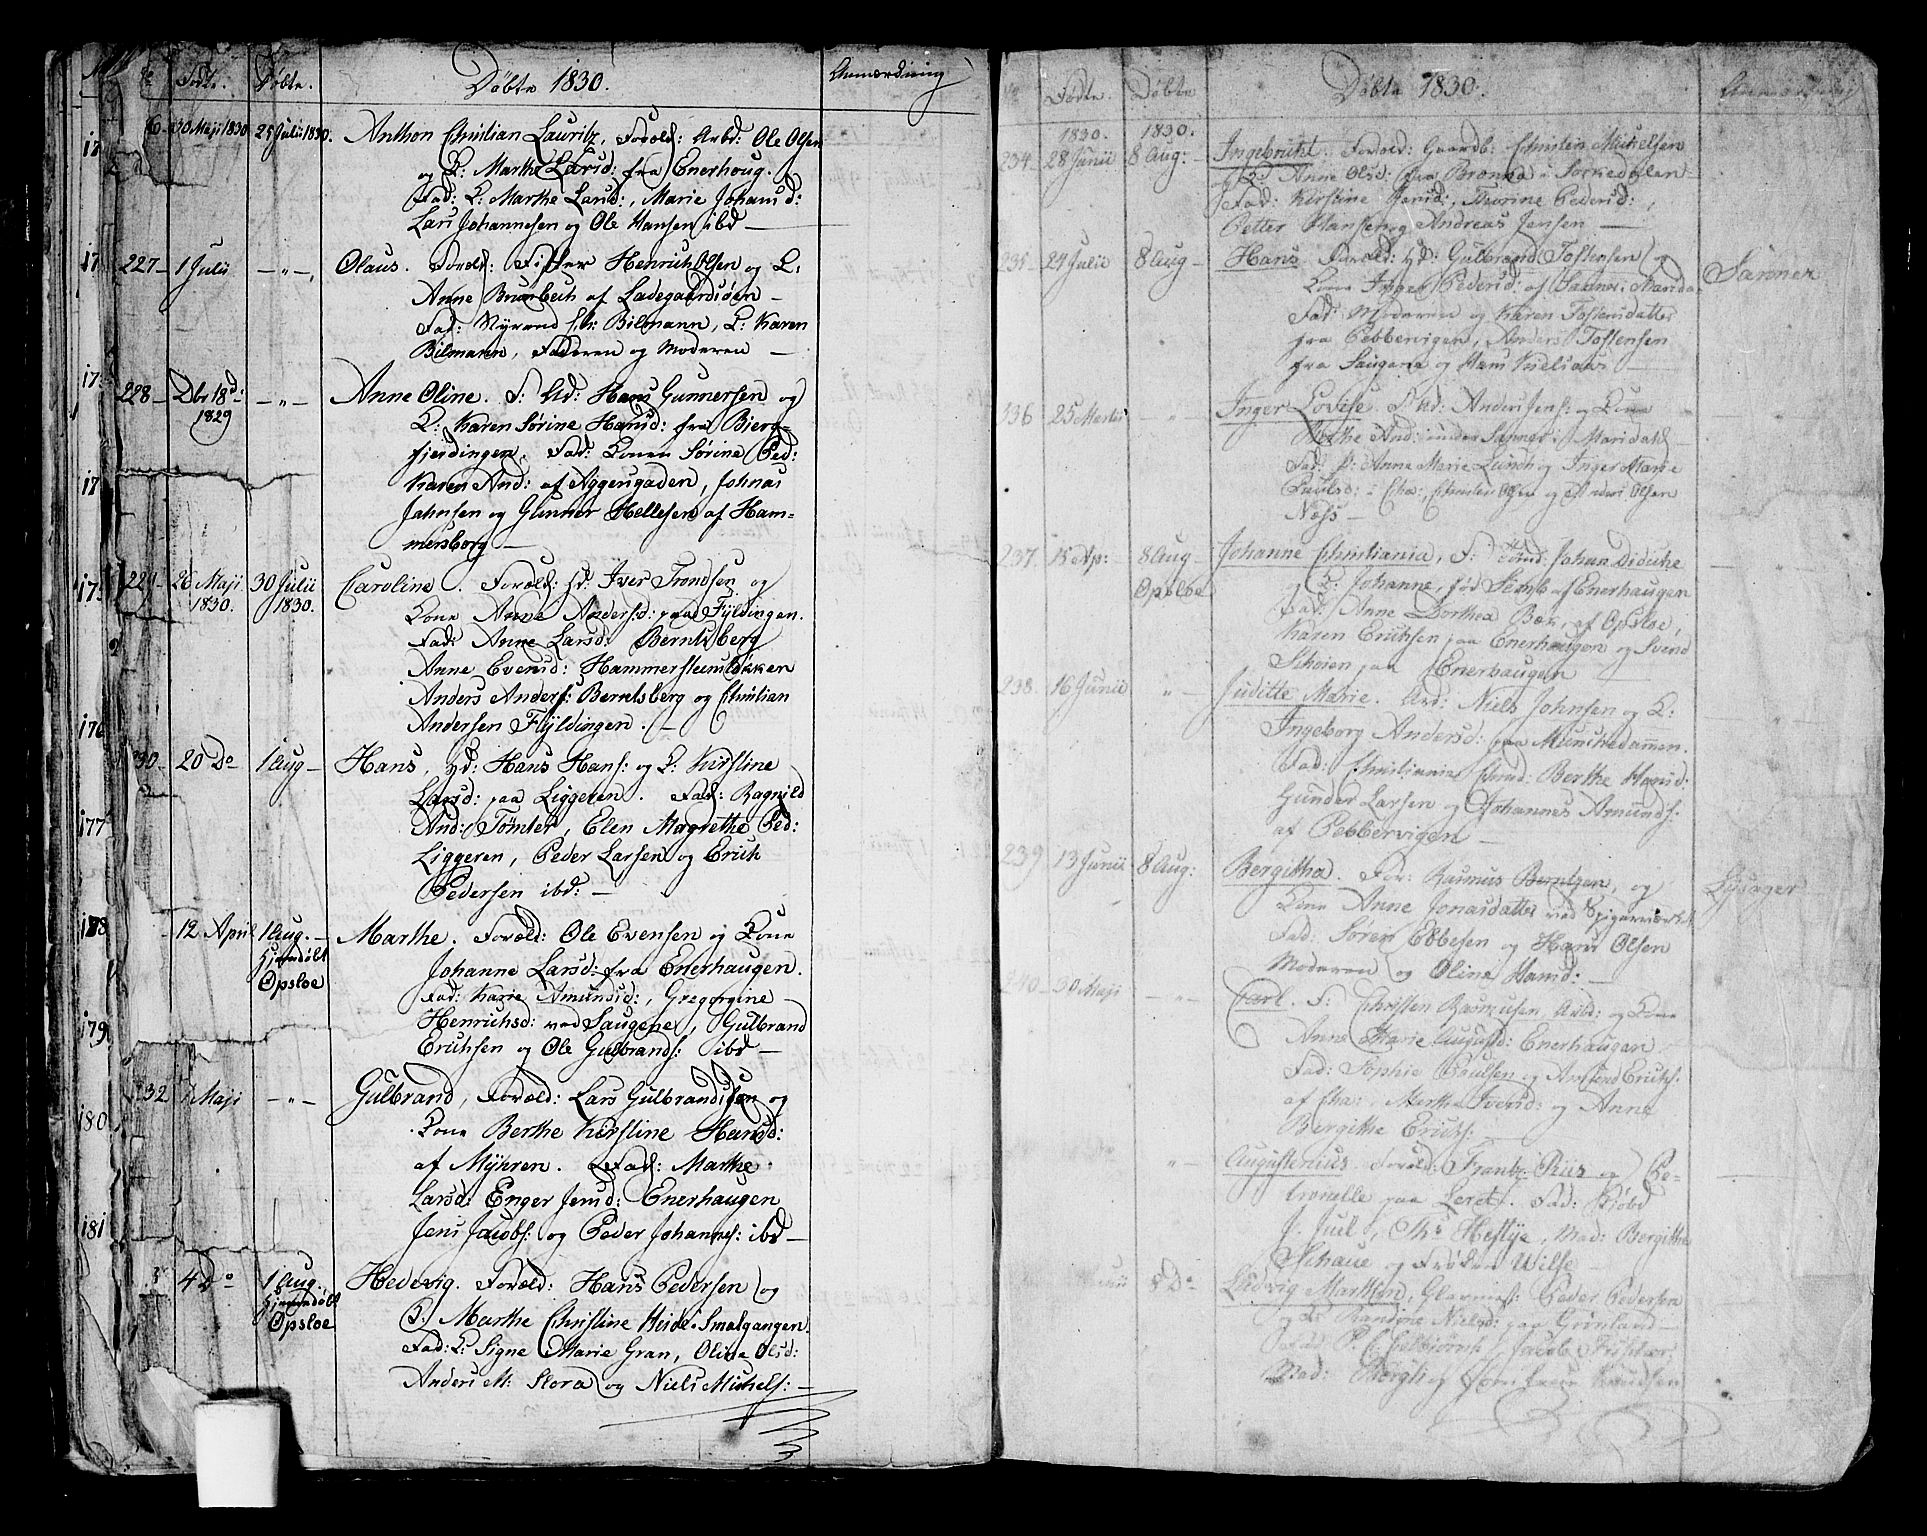 Fødte. Døbte. Døbte 1830. Anmærkning
6 30 Maji 1830 25 Julii 1830. Anthon Christian Lauritz, Foræld: Arbd: Ole Olsen
og K: Marthe Larsd: fra Enerhoug.
Fad: K: Marthe Larsd:, Marie Johansd:
Lars Johannesen og Ole Hansen ibd —
227 — 1 Julii — " — Olaus. Foræld: Fisker Henrich Olsen og K:
Anne Brumbech af Ladegaardsøen —
Fad: Styrmd Bilmann, K: Karen
Bilmann, Faderen og Moderen —
228 — Dbr 18d: 1829 — " — Anne Oline. F: Ud: Hans Gunnersen og
K: Karen Sørine Hansd: fra Bierg-
fjerdingen. Fad: Konen Sørine Ped:
Karen And: af Aggersgaden, Johnas
Jahnsen og Gunner Hellesen af Ham-
mersborg —
229 — 26 Maji 1830. 30 Julii 1830. Caroline. Foræld: Hd: Iver Trondsen og
Kone Anne Andersd: paa Fyldingen.
Fad: Anne Larsd: Berntsberg
Anne Evensd: Hammersteensløkken
Anders Anders: Berntsberg og Christian
Andersen Fyldingen. —
30 — 20 Do 1 Aug — Hans, Hd: Hans Hans: og K: Kirstine
Larsd: paa Liggeren. Fad: Ragnild
And: Tømter, Elen Magrethe Ped:
Liggeren, Peder Larsen og Erich
Pedersen ibd: —
12 April 1 Aug. — Hjemdøbt Opsloe Marthe. Foræld: Ole Evensen og Kone
Johanne Larsd: fra Enerhaugen.
Fad: Karie Amundsd:, Gregorgine
Henrichsd: ved Saugene, Gulbrand
Erichsen og Ole Gulbrands: ibd —
232 7 Maji — " — Gulbrand, Foræld: Lars Gulbrandsen og
Kone Berthe Kirstine Hansd:
af Myhren. Fad: Marthe
Larsd: Enger Jensd: Enerhaugen
Jens Jacobs: og Peder Johannes: ibd —
4 Do 1 Aug. Hjemdøbt Opsloe Hedevig. Foræld: Hans Pedersen og
K: Marthe Christine Heide i Smalgangen.
Fad: K: Signe Marie Gran, Oline Olsd:
Anders M: Stora og Niels Michels: —
17
176
177
178
179
180
181
Fødte. Døbte Døbte 1830.
1830. 1830.
234. 28 Junii 8 Aug: — Ingebricht. Foræld: Gaardb: Christen Michelsen
og K: Anne Olsd: fra Bronka i Sørkedalen
Fad: Kirstine Jensd:, Thorine Pedersd:,
Petter Hansen og Andreas Jensen —
235 — 24 Julii 8 Aug — Hans Foræld: Hd: Gulbrand Tostensen og Sanner
Kone Inger Pedersd: af Sanner i Marida
Fad: Moderen og Karen Tostensdatter
fra Pebbervigen, Anders Tostensen
fra Saugene og Hans
236 25 Martii " — Inger Lovise. F: Hd: Anders Jens: og Kone
And: under Sanner i Maridal —
Fad: P: Anne Marie Lund og Inger Marie
Paulsd: i Cha:, Christen Olsen og Anders Olsen
Næss —
237. 15 Ap: 8 Aug Opsloe Johanne Christiania, F: Johan
og K: Johanne, fød af Enerhaugen
Fad: Anne Dorthea Bek, af Opsloe,
Karen Erichsen paa Enerhaugen og Svend
Schøien paa Enerhaugen —
238. 16 Junii " — Juditte Marie. Arb: Niels Johnsen og K:
Ingeborg Andersd: paa Munchedammen.
Fad: Christianie Berthe Hansd:
Gunder Larsen og Johannes Amunds:
af Pebbervigen —
239 13 Junii 8 Aug: Bergitha. For: Rasmus Berntzen, og Lysager
Kone Anne Jonasdatter ved Spigerværket
Fad: Søren Ebbesen og Hans Olsen
Moderen og Oline Hansd: —
240 — 30 Maji — " — Carl. F: Christen Rasmusen, Arbd: og Kone
Anne Marie Augustd: Enerhaugen.
Fad: Sophie Poulsen og Amund Erichs:
af Cha:, Marthe Iversd: og Anne
Bergithe Erichs:
" — Augustenius. Foræld: Frantz Riis og Pe-
tronelle paa Leret. Fad: Kjøbd
J. Juel, Ths Heftye, Mad: Bergitha
Schaue og Frøken Wilse —
8 Do Ludvig Marthin, Glarmes: Peder Pedersen
og K: Randine Nielsd: paa Grønland —
Jacob
Mad: Knudsen